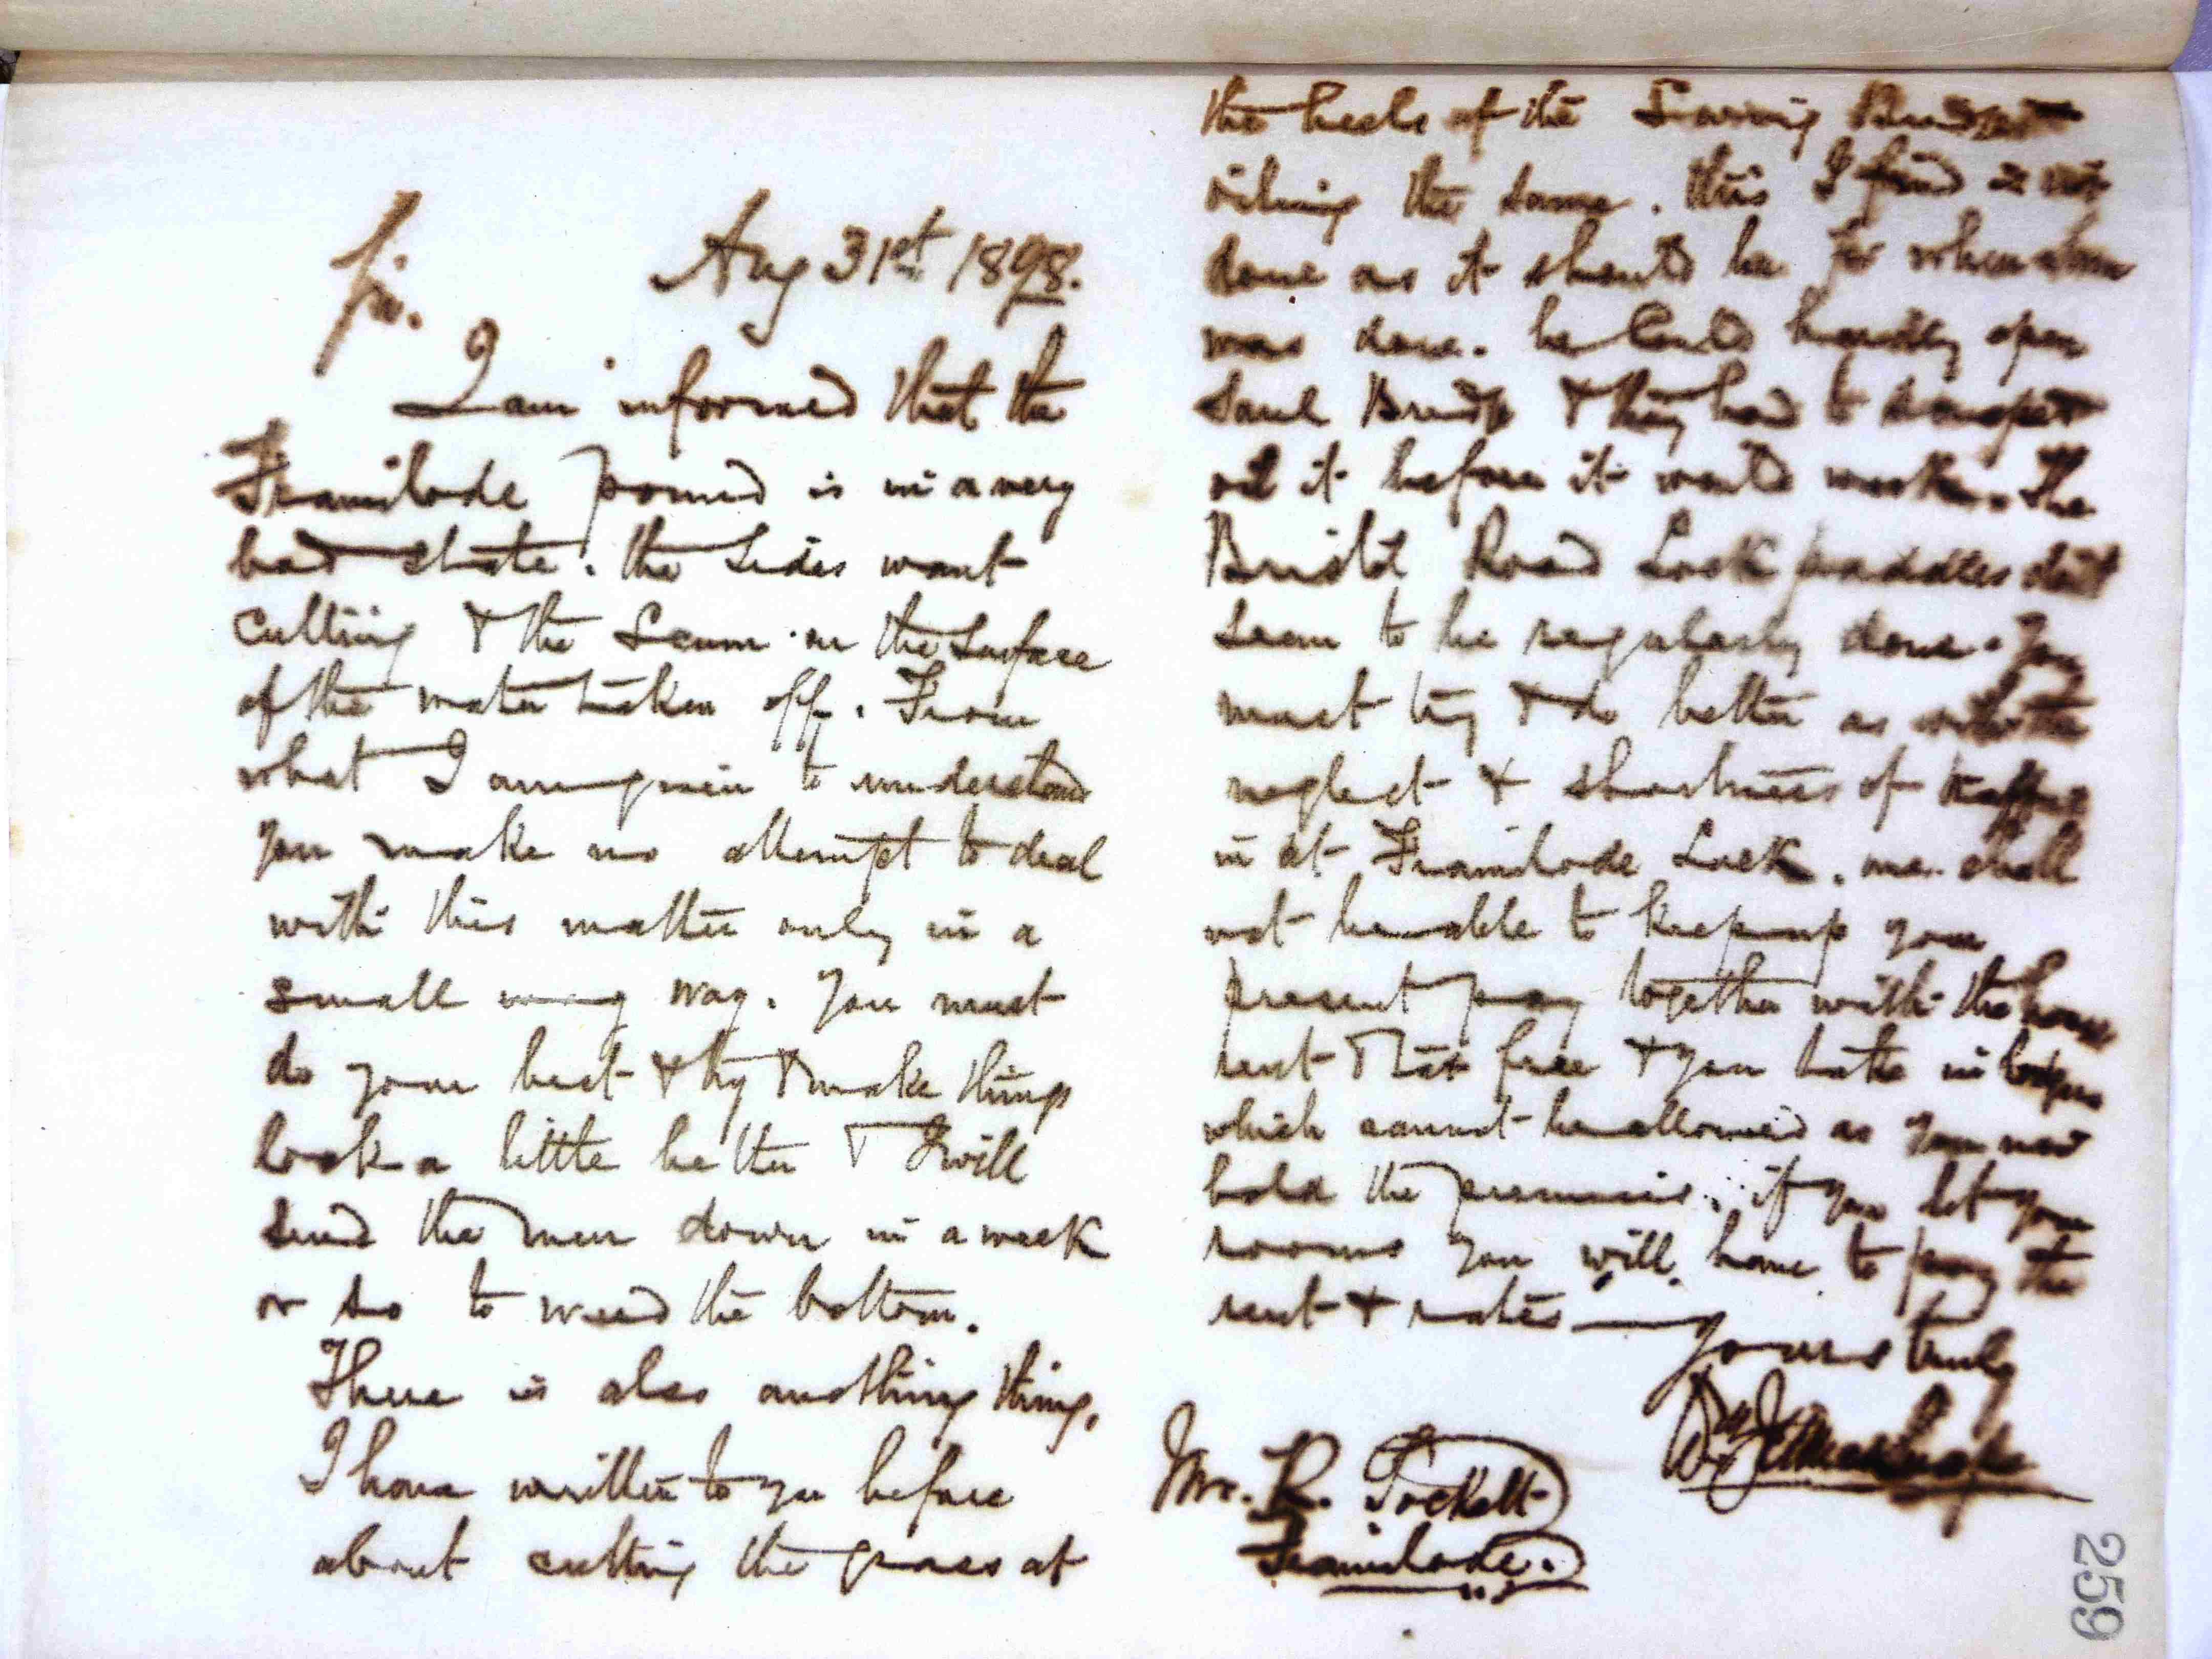 Aug 31st 1898.
Sir.
I am informed that the
Framilode pound is in a very
bad state. the sides want
cutting & the Scum on the Surface
of the water taken off. From
what I am given to understand
you make no attempt to deal
with this matter only in a
small way. You must
do your best & try & make things
look a little better & I will
send the men down in a week
or so to weed the bottom.
There is also anothing thing,
I have written to you before
about cutting the grass at
the heels of the Swing Bridges
oiling the same. this I find is not
done as it should be for when
was done. he could hardly open
Saul Bridge & they had to scrape &
oil it before it would work. The
Bristol Road Lock paddles dont
seem to be regularly done. You
must try & do better as with the
neglect & shortness of traffic
in at Framilode Lock. we shall
not be able to keep up your
present pay together with the house
rent & rat free & you take in lodgers
which cannot be allowed as you now
hold the premises. if you let your
rooms you will have to pay the
rent & rates — Yours truly
Mr. R. Tockett
Framilode.
259